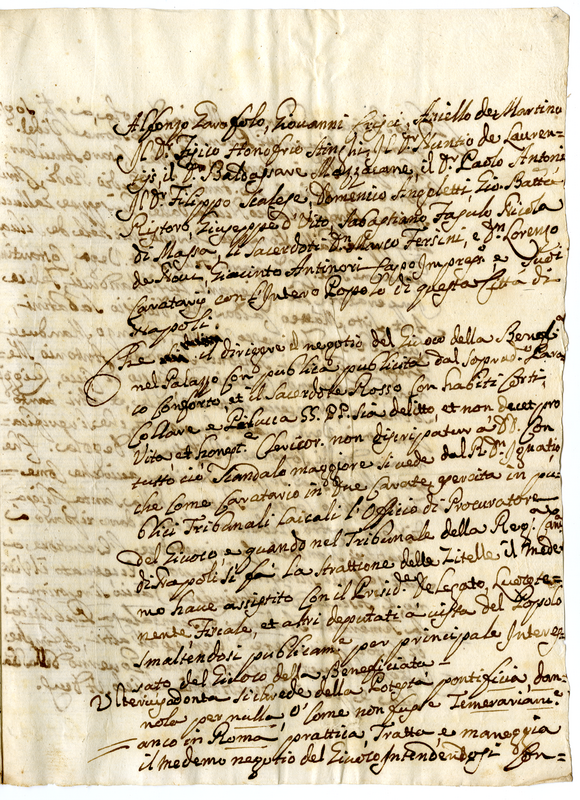 Alfonso Garofolo, Giovanni Crisci, Aniello de Martino
Il Dr. Fisico Honofrio Il Dr. Nuntio de Lauren-
tijs il Dr. Baldassare Mazzacane, il Dr. Paolo Antonio
Il Dr. Filippo Scalese, Domenico Angeletti, Gio: Batta
Ristoro, Giuseppe d'Vito, Sabastiano Nicola
di Massa, li Sacerdoti Dn. Marco Fersini, e Dn. Lorenzo
de Giacinto Antinori Capo Impres. e suoi
Caratarij con l'Intero Popolo di questa Città di
Napoli:
Che il dirigere il negotio del Giuoco della Benefi
nel Palazzo con publica publicità dal Sopra
co Conforto et il Sacerdote Rosso con habiti Corti
Collare e Pilucca SS. PP. sia delitto et non decet pro
Vita et honest.e Clericor. non a DD. Con
tutto ciò Scandalo maggiore si vede dal R. Dn. Ignatio
che come Caratario in due Carate, esercita in pu-
blici Tribunali Laicali l'Officio di Procuratore
del Giuoco e quando nel Tribunale della Reg.a
di Napoli si fà la strattione delle Zitelle il mede
mo have assistito con il Presid.e Delegato, Luogote-
nente Fiscale, et altri deputati à vista del Popolo
smaltendosi publicam.e per principale Interes-
sato del Giuoco della Beneficiata
si crede della Potestà pontificia don-
nola per nulla ò come non fusse Temerariam.e
anco in Roma prattica, Tratta e maneggia
il medemo negotio del Giuoco Intendendosi Con-